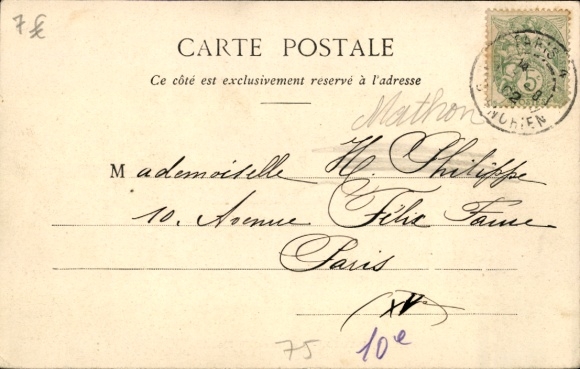 7£
CARTE POSTALE
Ce côté est exclusivement reservé à l'adresse
PARIS
5
Mathon
Mademoiselle H. Philippe
10. Avenue Félix Faure
Paris
XVe
75
10e